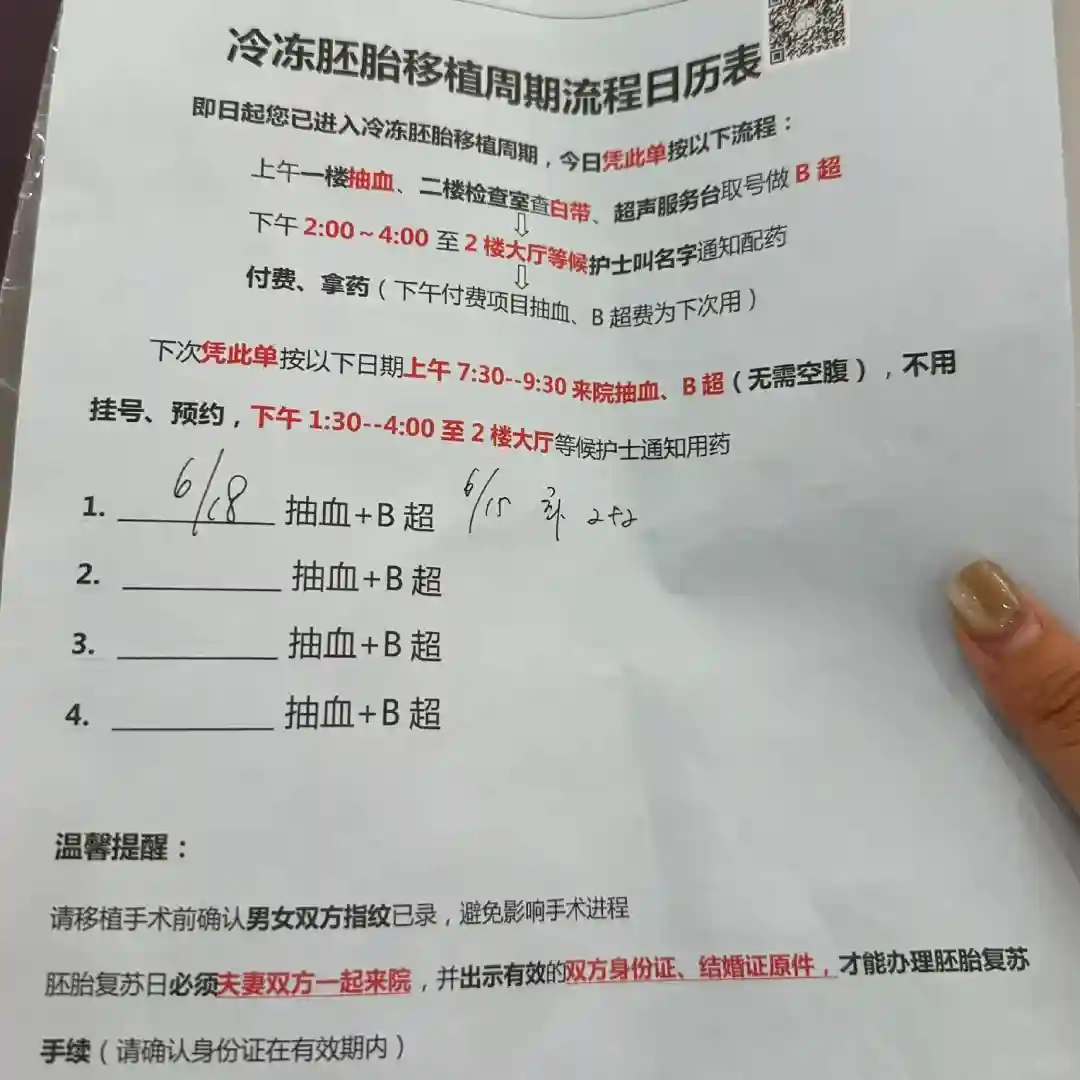 冷冻胚胎移植周期流程日历表
即日起您已进入冷冻胚胎移植周期，今日凭此单按以下流程：
上午一楼抽血、二楼检查室查白带、超声服务台取号做 B 超
⇩
下午 2:00～4:00 至 2 楼大厅等候护士叫名字通知配药
⇩
付费、拿药（下午付费项目抽血、B 超费为下次用）
下次凭此单按以下日期上午 7:30--9:30 来院抽血、B 超（无需空腹），不用
挂号、预约，下午 1:30--4:00 至 2 楼大厅等候护士通知用药
1. 6/18 抽血+B 超 6/15 补 2+2
2. ________ 抽血+B 超
3. ________ 抽血+B 超
4. ________ 抽血+B 超
温馨提醒：
请移植手术前确认男女双方指纹已录，避免影响手术进程
胚胎复苏日必须夫妻双方一起来院，并出示有效的双方身份证、结婚证原件，才能办理胚胎复苏
手续（请确认身份证在有效期内）